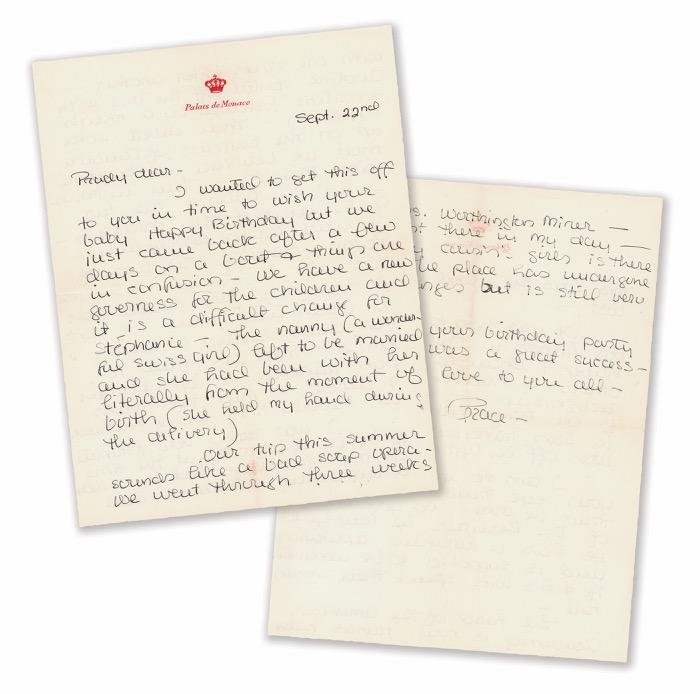 Palais de Monaco
Sept. 22nd
Prudy dear -
I wanted to get this off
to you in time to wish your
baby Happy Birthday but we
just came back after a few
days on a boat & things are
in confusion - We have a new
governess for the children and
it is a difficult change for
Stéphanie - The nanny (a wonder-
ful Swiss girl) left to be married
and she had been with her
literally from the moment of
birth (she held my hand during
the delivery)
Our trip this summer
sounds like a bad soap opera -
we went through three weeks
s. Worthington Miner —
t there in my day —
y cousin's girls is there
he place has undergone
nges but is still very
your birthday party
was a great success -
love to you all -
Grace -